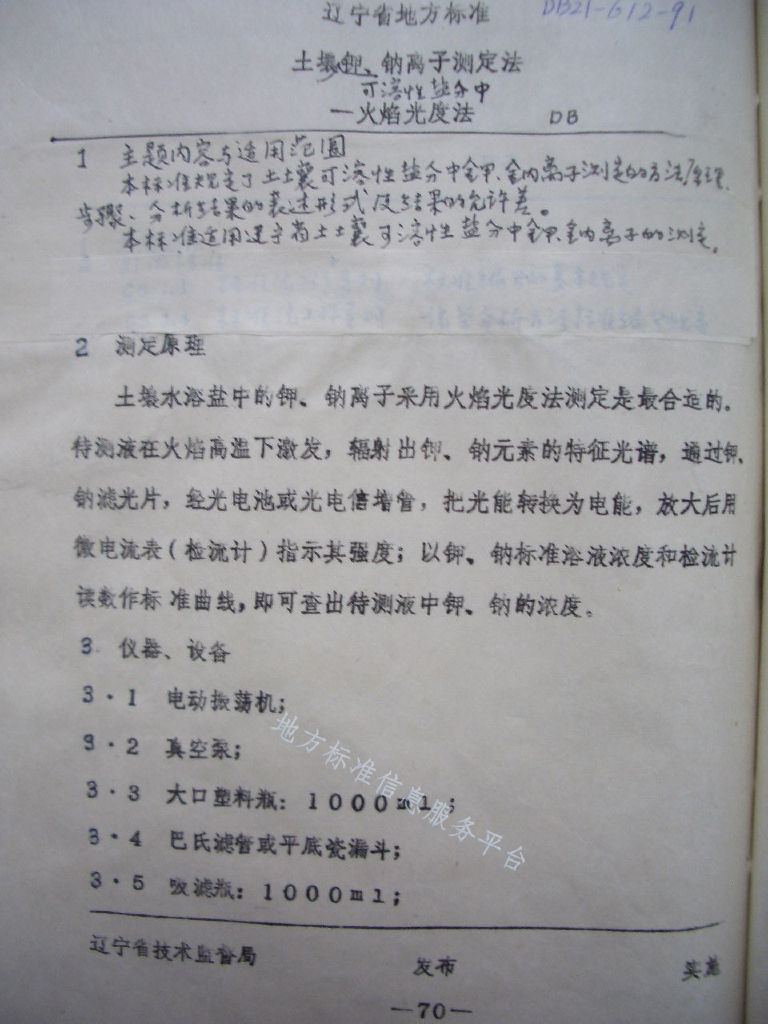 辽宁省地方标准 DB21-612-91
土壤钾、钠离子测定法
可溶性盐分中
—火焰光度法 DB
1 主题内容与适用范围
本标准规定了土壤可溶性盐分中钾、钠离子测定的方法原理、
步骤、分析结果的表述形式及结果的允许差。
本标准适用辽宁省土壤可溶性盐分中钾、钠离子的测定。
2 测定原理
土壤水溶盐中的钾、钠离子采用火焰光度法测定是最合适的。
待测液在火焰高温下激发，辐射出钾、钠元素的特征光谱，通过钾、
钠滤光片，经光电池或光电倍增管，把光能转换为电能，放大后用
微电流表（检流计）指示其强度；以钾、钠标准溶液浓度和检流计
读数作标准曲线，即可查出待测液中钾、钠的浓度。
3 仪器、设备
3·1 电动振荡机；
3·2 真空泵；
3·3 大口塑料瓶：1000ml；
3·4 巴氏滤管或平底瓷漏斗；
3·5 吸滤瓶：1000ml；
地方标准信息服务平台
辽宁省技术监督局 发布 实施
—70—